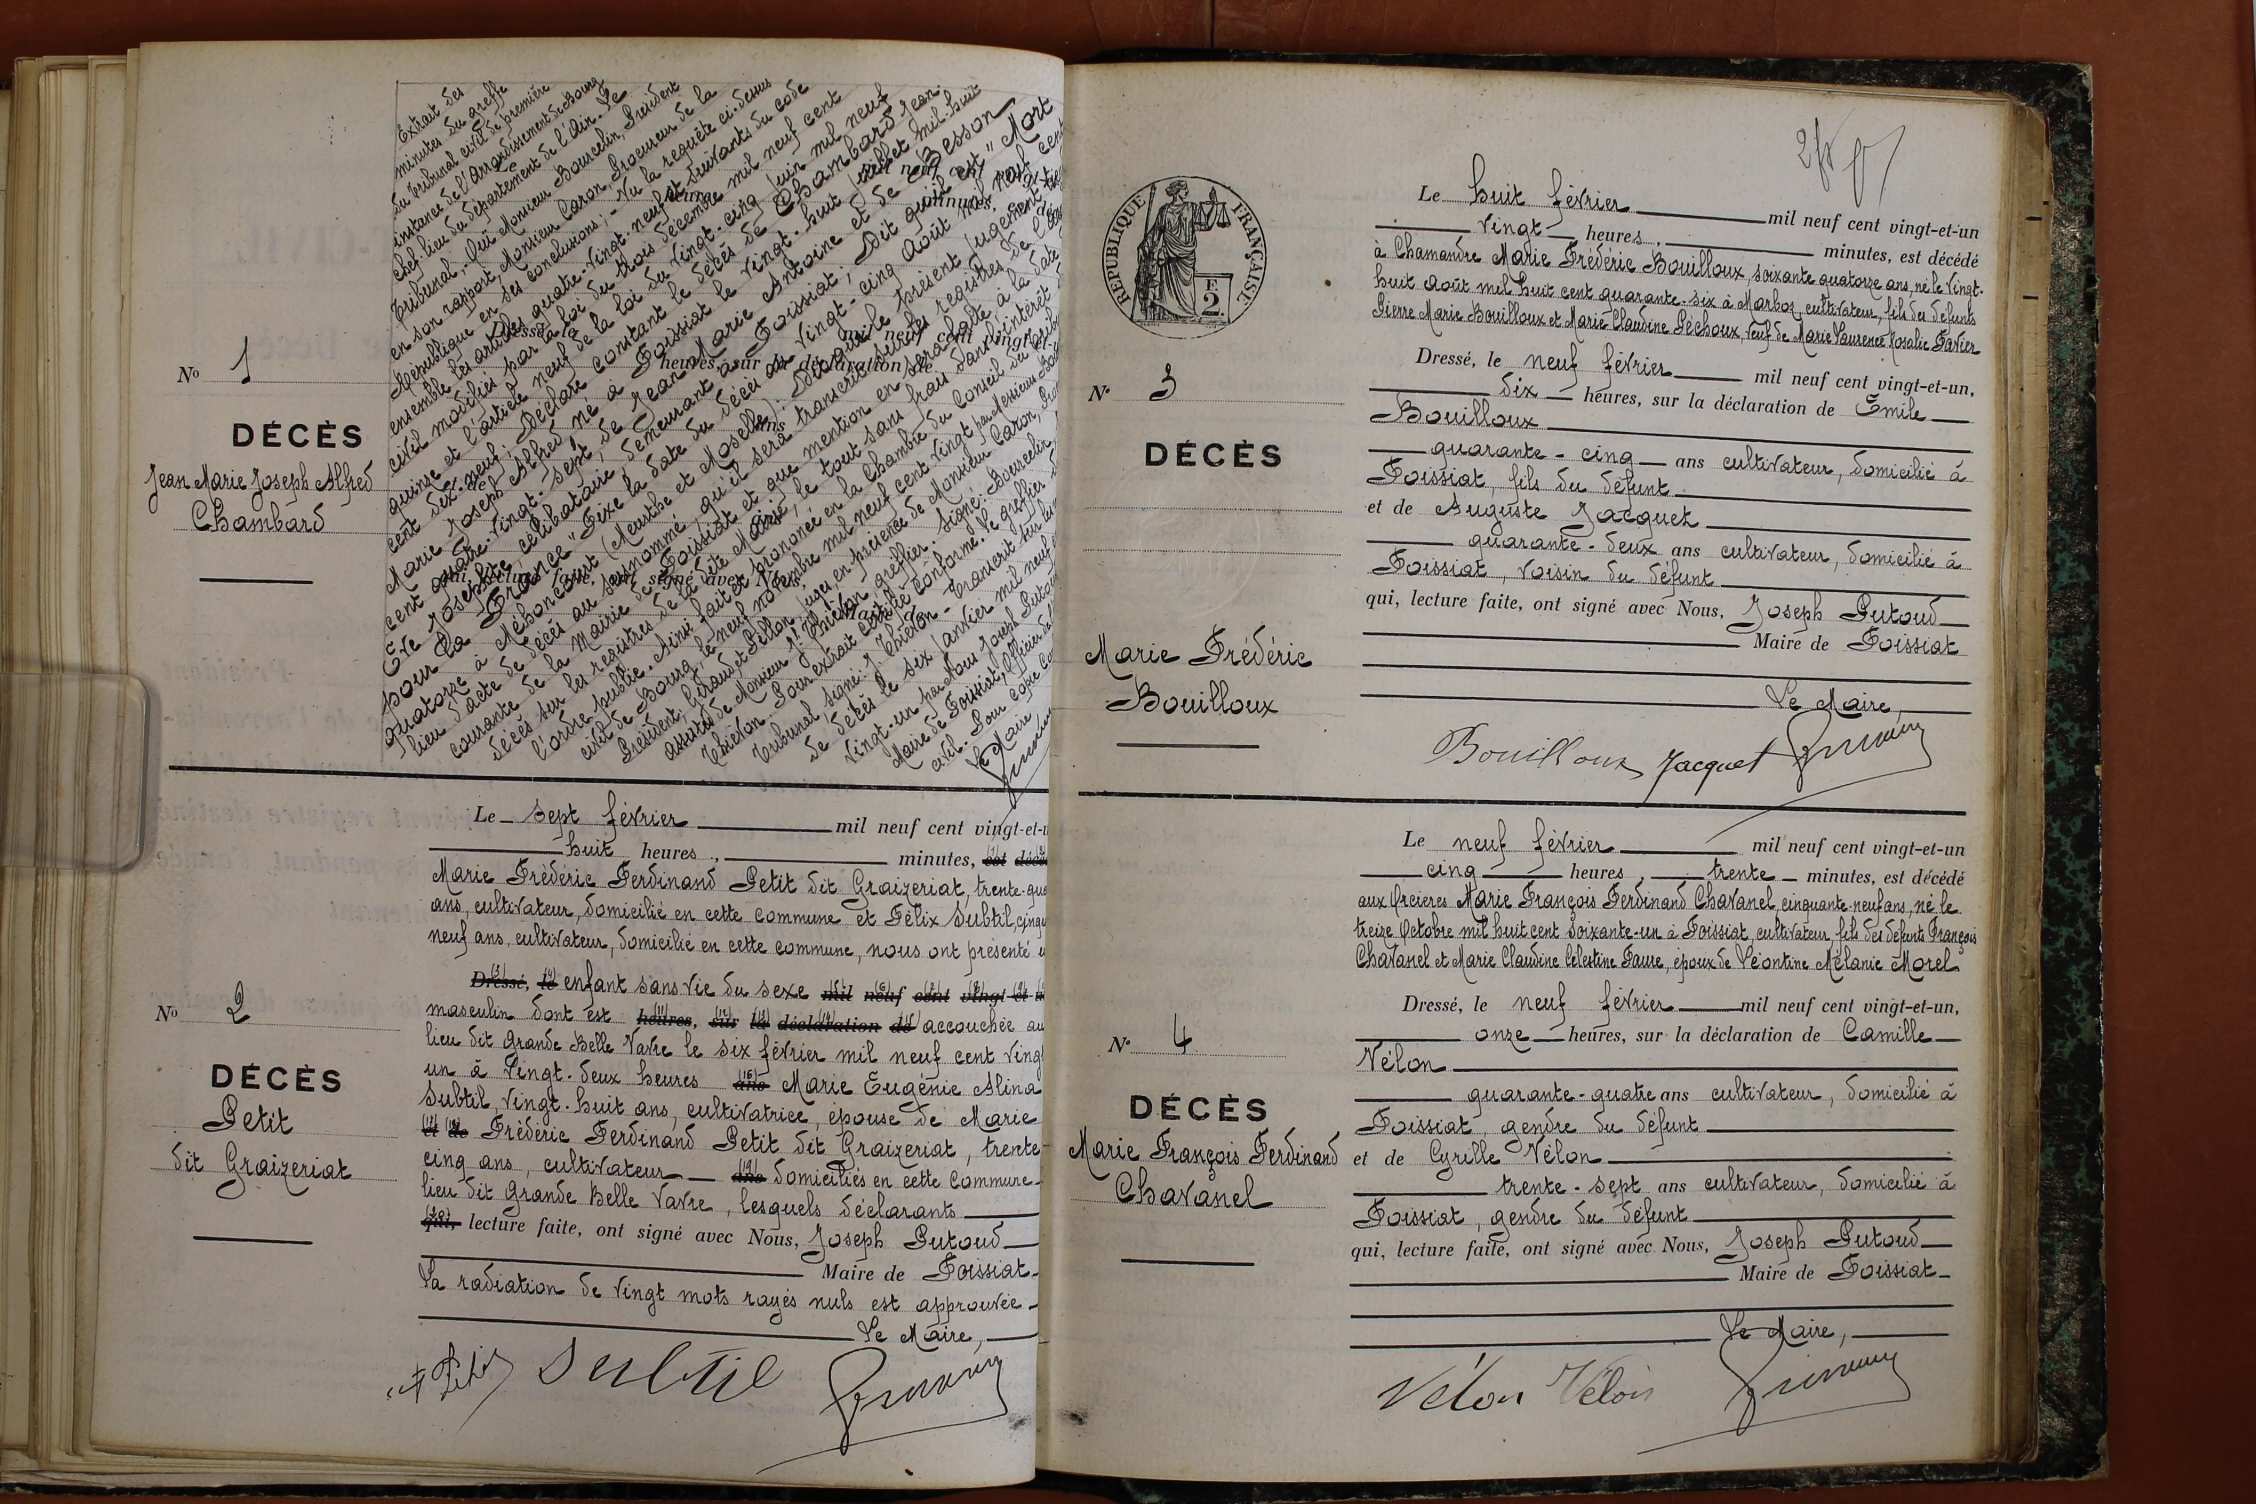 Extrait des
minutes du greffe
du Tribunal civil de première
instance de l'Arrondissement de Bourg
chef-lieu du département de l'Ain. Le
Tribunal, Ouï Monsieur Bourcelin, Président
en son rapport, Monsieur Caron, Procureur de la
République en ses conclusions; - Vu la requête ci-dessus
ensemble les articles quatre-vingt-neuf et suivants du code
civil modifiés par la loi du trois décembre mil neuf cent
quinze et l'article neuf de la loi du vingt-cinq juin mil neuf
cent dix-neuf; Déclare constant le décès de Chambard Jean
Marie Joseph Alfred né à Foissiat le vingt-huit juillet mil-huit
cent quatre-vingt-sept, de Jean Marie Antoine et de Besson
Eve Josephte, célibataire, demeurant à Foissiat; Dit qu'il est "Mort
pour la France" Fixe la date du décès au vingt-cinq août mil neuf cent
quatorze à Méhoncourt (Meurthe et Moselle); Dit que le présent jugement
lieu d'acte de décès au susnommé, qu'il sera transcrit sur les registres de l'année
courante de la Mairie de Foissiat et que mention en sera faite à la date
décès sur les registres de la dite Mairie, le tout sans frais dans l'intérêt
l'ordre public. Ainsi fait et prononcé en la Chambre du Conseil du
civil de Bourg, le neuf novembre mil neuf cent vingt par Messieurs
Président, Giraud et Pillon, juges, en présence de Monsieur Caron,
assisté de Monsieur J. Thiévon, greffier. Signé: Bourcelin
Thiévon. Pour extrait certifié conforme. Le greffier
Tribunal signé: J. Thiévon - Transcrit sur les
de décès le six janvier mil neuf
vingt-un par Nous Joseph Putoud
Maire de Foissiat, officier
civil. Pour copie
Le Maire
No 1
DÉCÈS
Jean Marie Joseph Alfred
Chambard
Le sept février mil neuf cent vingt-et-u
huit heures, minutes, est décédé
Marie Frédéric Ferdinand Petit dit Graizeriat, trente-
ans, cultivateur, domicilié en cette commune et Félix Subtil,
neuf ans, cultivateur, domicilié en cette commune, nous ont présenté
Dressé, le enfant sans vie du sexe mil neuf cent vingt et
masculin dont est heures, sur la déclaration de accouchée au
lieu dit Grande Belle Vavre le six février mil neuf cent vingt
un à vingt-deux heures ans Marie Eugénie Alina
Subtil, vingt-huit ans, cultivatrice, épouse de Marie
et de Frédéric Ferdinand Petit dit Graizeriat, trente
cinq ans, cultivateur ans domiciliés en cette commune
lieu dit Grande Belle Vavre, lesquels déclarants
qui, lecture faite, ont signé avec Nous, Joseph Putoud
Maire de Foissiat
La radiation de vingt mots rayés nuls est approuvée
Le Maire,
Petit Subtil
No 2
DÉCÈS
Petit
dit Graizeriat
RÉPUBLIQUE FRANÇAISE
F
2
Le huit février mil neuf cent vingt-et-un
vingt heures, minutes, est décédé
à Chamandre Marie Frédéric Bouilloux, soixante quatorze ans, né le vingt-
huit août mil huit cent quarante-six à Marboz, cultivateur, fils des défunts
Pierre Marie Bouilloux et Marie Claudine Péchoux, veuf de Marie Laurence Rosalie Favier
Dressé, le neuf février mil neuf cent vingt-et-un,
dix heures, sur la déclaration de Émile
Bouilloux
quarante-cinq ans cultivateur, domicilié à
Foissiat, fils du défunt
et de Auguste Jacquet
quarante-deux ans cultivateur, domicilié à
Foissiat, voisin du défunt
qui, lecture faite, ont signé avec Nous, Joseph Putoud
Maire de Foissiat
Le Maire,
Bouilloux Jacquet
No 3
DÉCÈS
Marie Frédéric
Bouilloux
Le neuf février mil neuf cent vingt-et-un
cinq heures, trente minutes, est décédé
aux Orcières Marie François Ferdinand Chavanel, cinquante-neuf ans, né le
treize Octobre mil huit cent soixante-un à Foissiat, cultivateur, fils des défunts François
Chavanel et Marie Claudine Célestine Faure, époux de Léontine Mélanie Morel
Dressé, le neuf février mil neuf cent vingt-et-un,
onze heures, sur la déclaration de Camille
Vélon
quarante-quatre ans cultivateur, domicilié à
Foissiat, gendre du défunt
et de Cyrille Vélon
trente-sept ans cultivateur, domicilié à
Foissiat, gendre du défunt
qui, lecture faite, ont signé avec Nous, Joseph Putoud
Maire de Foissiat
Le Maire,
Vélon Vélon
No 4
DÉCÈS
Marie François Ferdinand
Chavanel